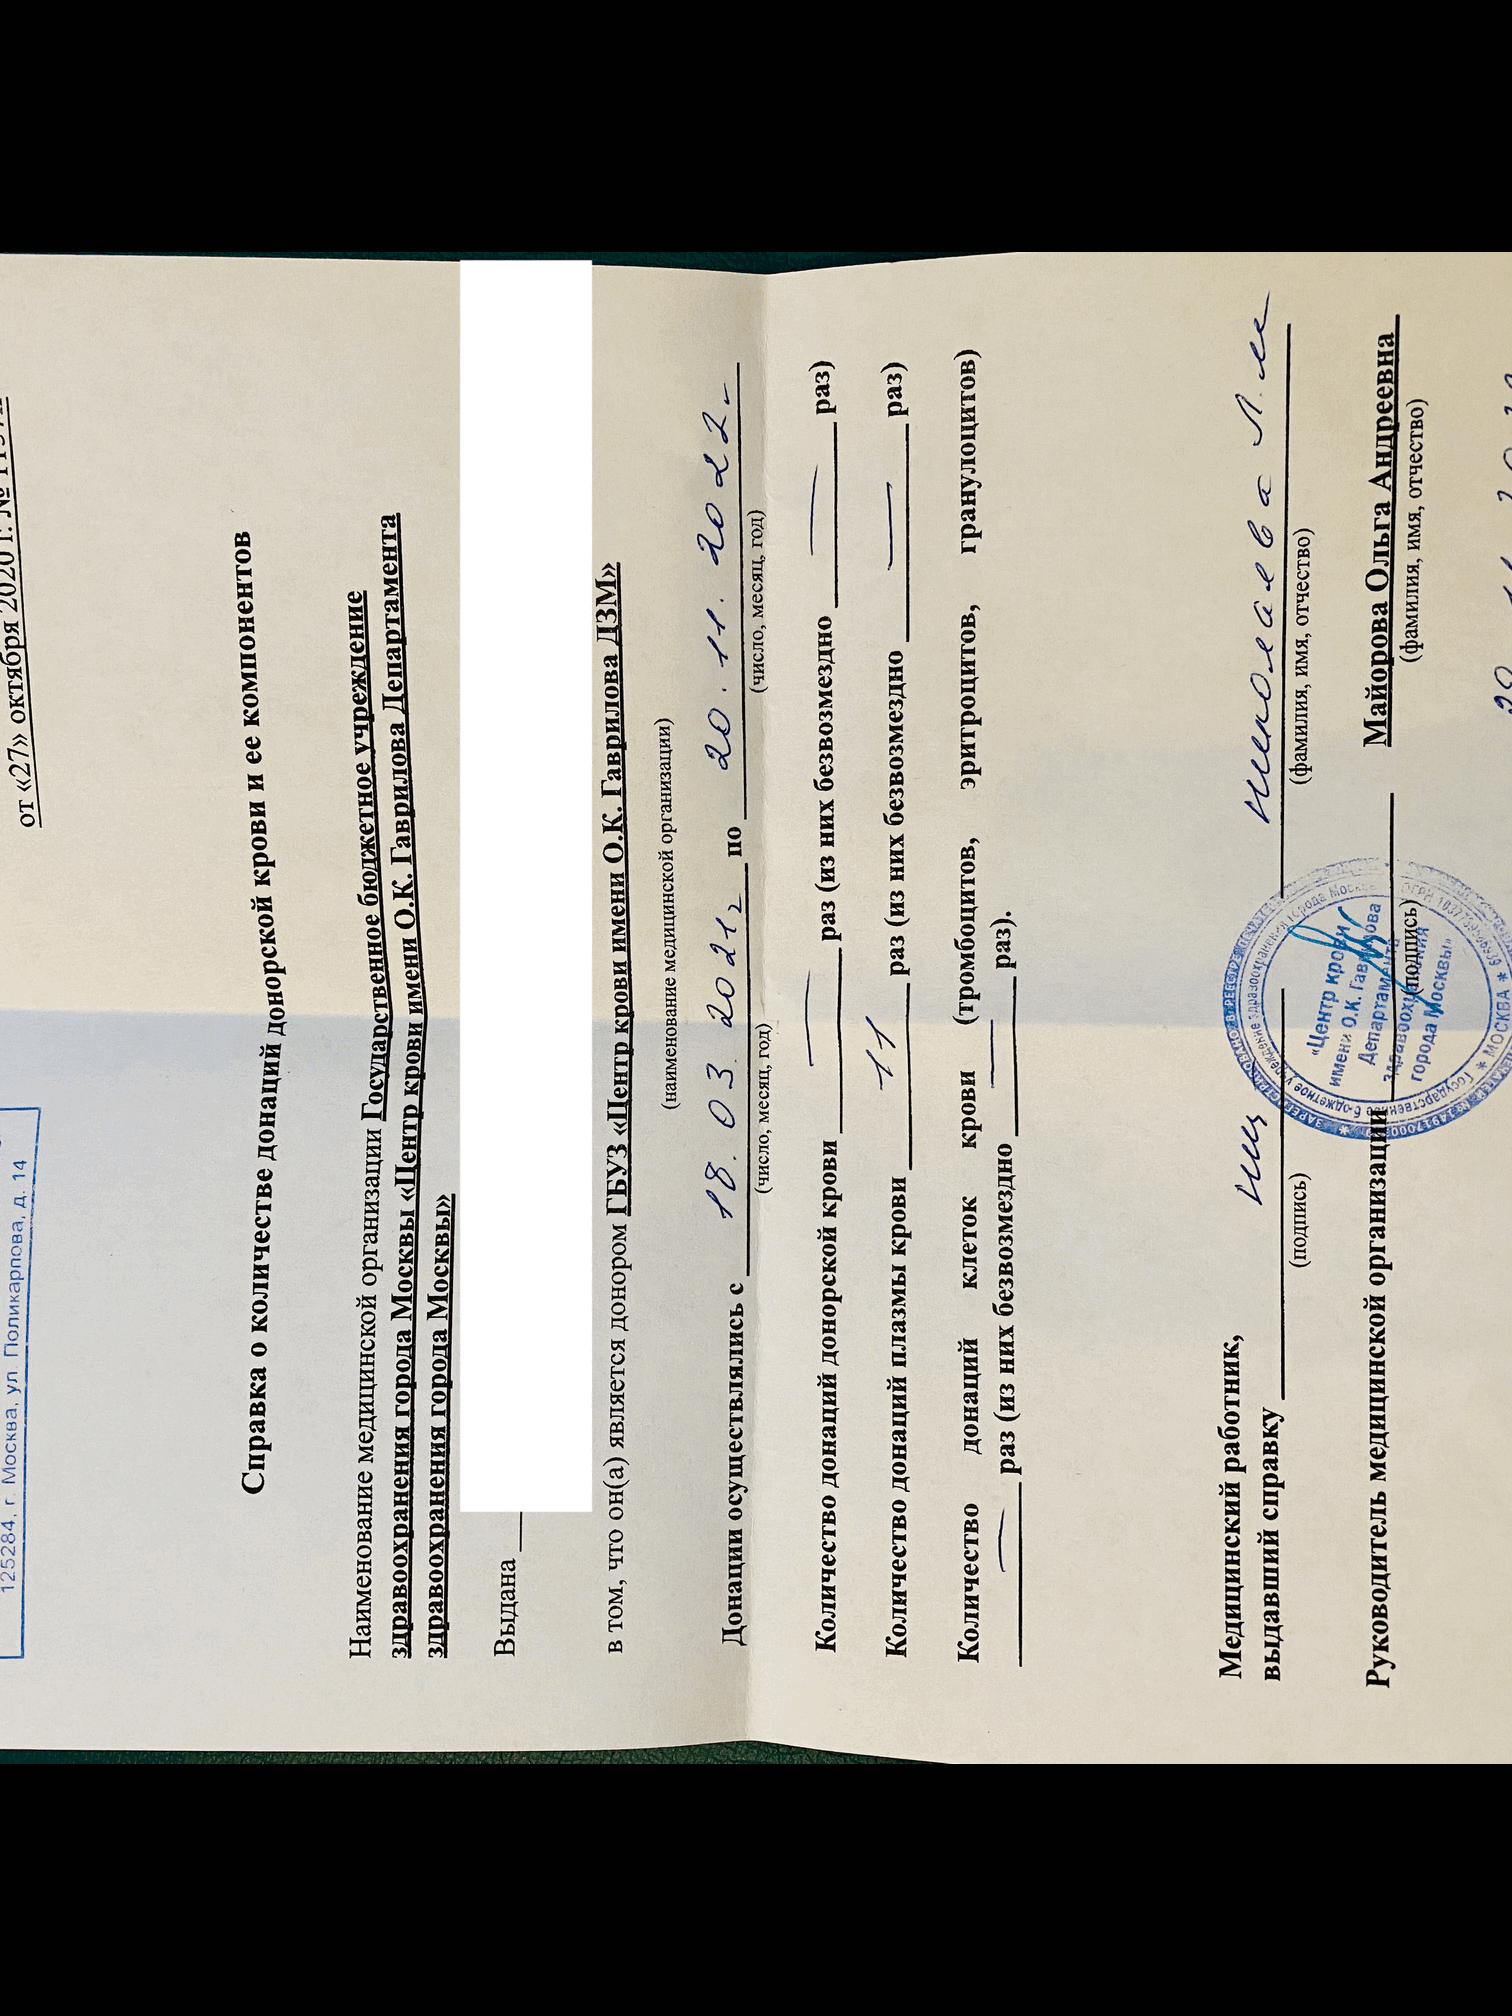 125284, г. Москва, ул. Поликарпова, д. 14
от «27» октября 2020 г. №
Справка о количестве донаций донорской крови и ее компонентов
Наименование медицинской организации Государственное бюджетное учреждение
здравоохранения города Москвы «Центр крови имени О.К. Гаврилова Департамента
здравоохранения города Москвы»
Выдана
в том, что он(а) является донором ГБУЗ «Центр крови имени О.К. Гаврилова ДЗМ»
(наименование медицинской организации)
Донации осуществлялись с 18.03.2021г по 20.11.2022г
(число, месяц, год) (число, месяц, год)
Количество донаций донорской крови — раз (из них безвозмездно — раз)
Количество донаций плазмы крови 11 раз (из них безвозмездно — раз)
Количество донаций клеток крови (тромбоцитов, эритроцитов, гранулоцитов)
— раз (из них безвозмездно — раз).
Медицинский работник,
выдавший справку Николаева Л.М
(подпись) (фамилия, имя, отчество)
Руководитель медицинской организации Майорова Ольга Андреевна
(подпись) (фамилия, имя, отчество)
«Центр крови
имени О.К. Гаврилова
Департамента
здравоохранения
города Москвы»
* МОСКВА *